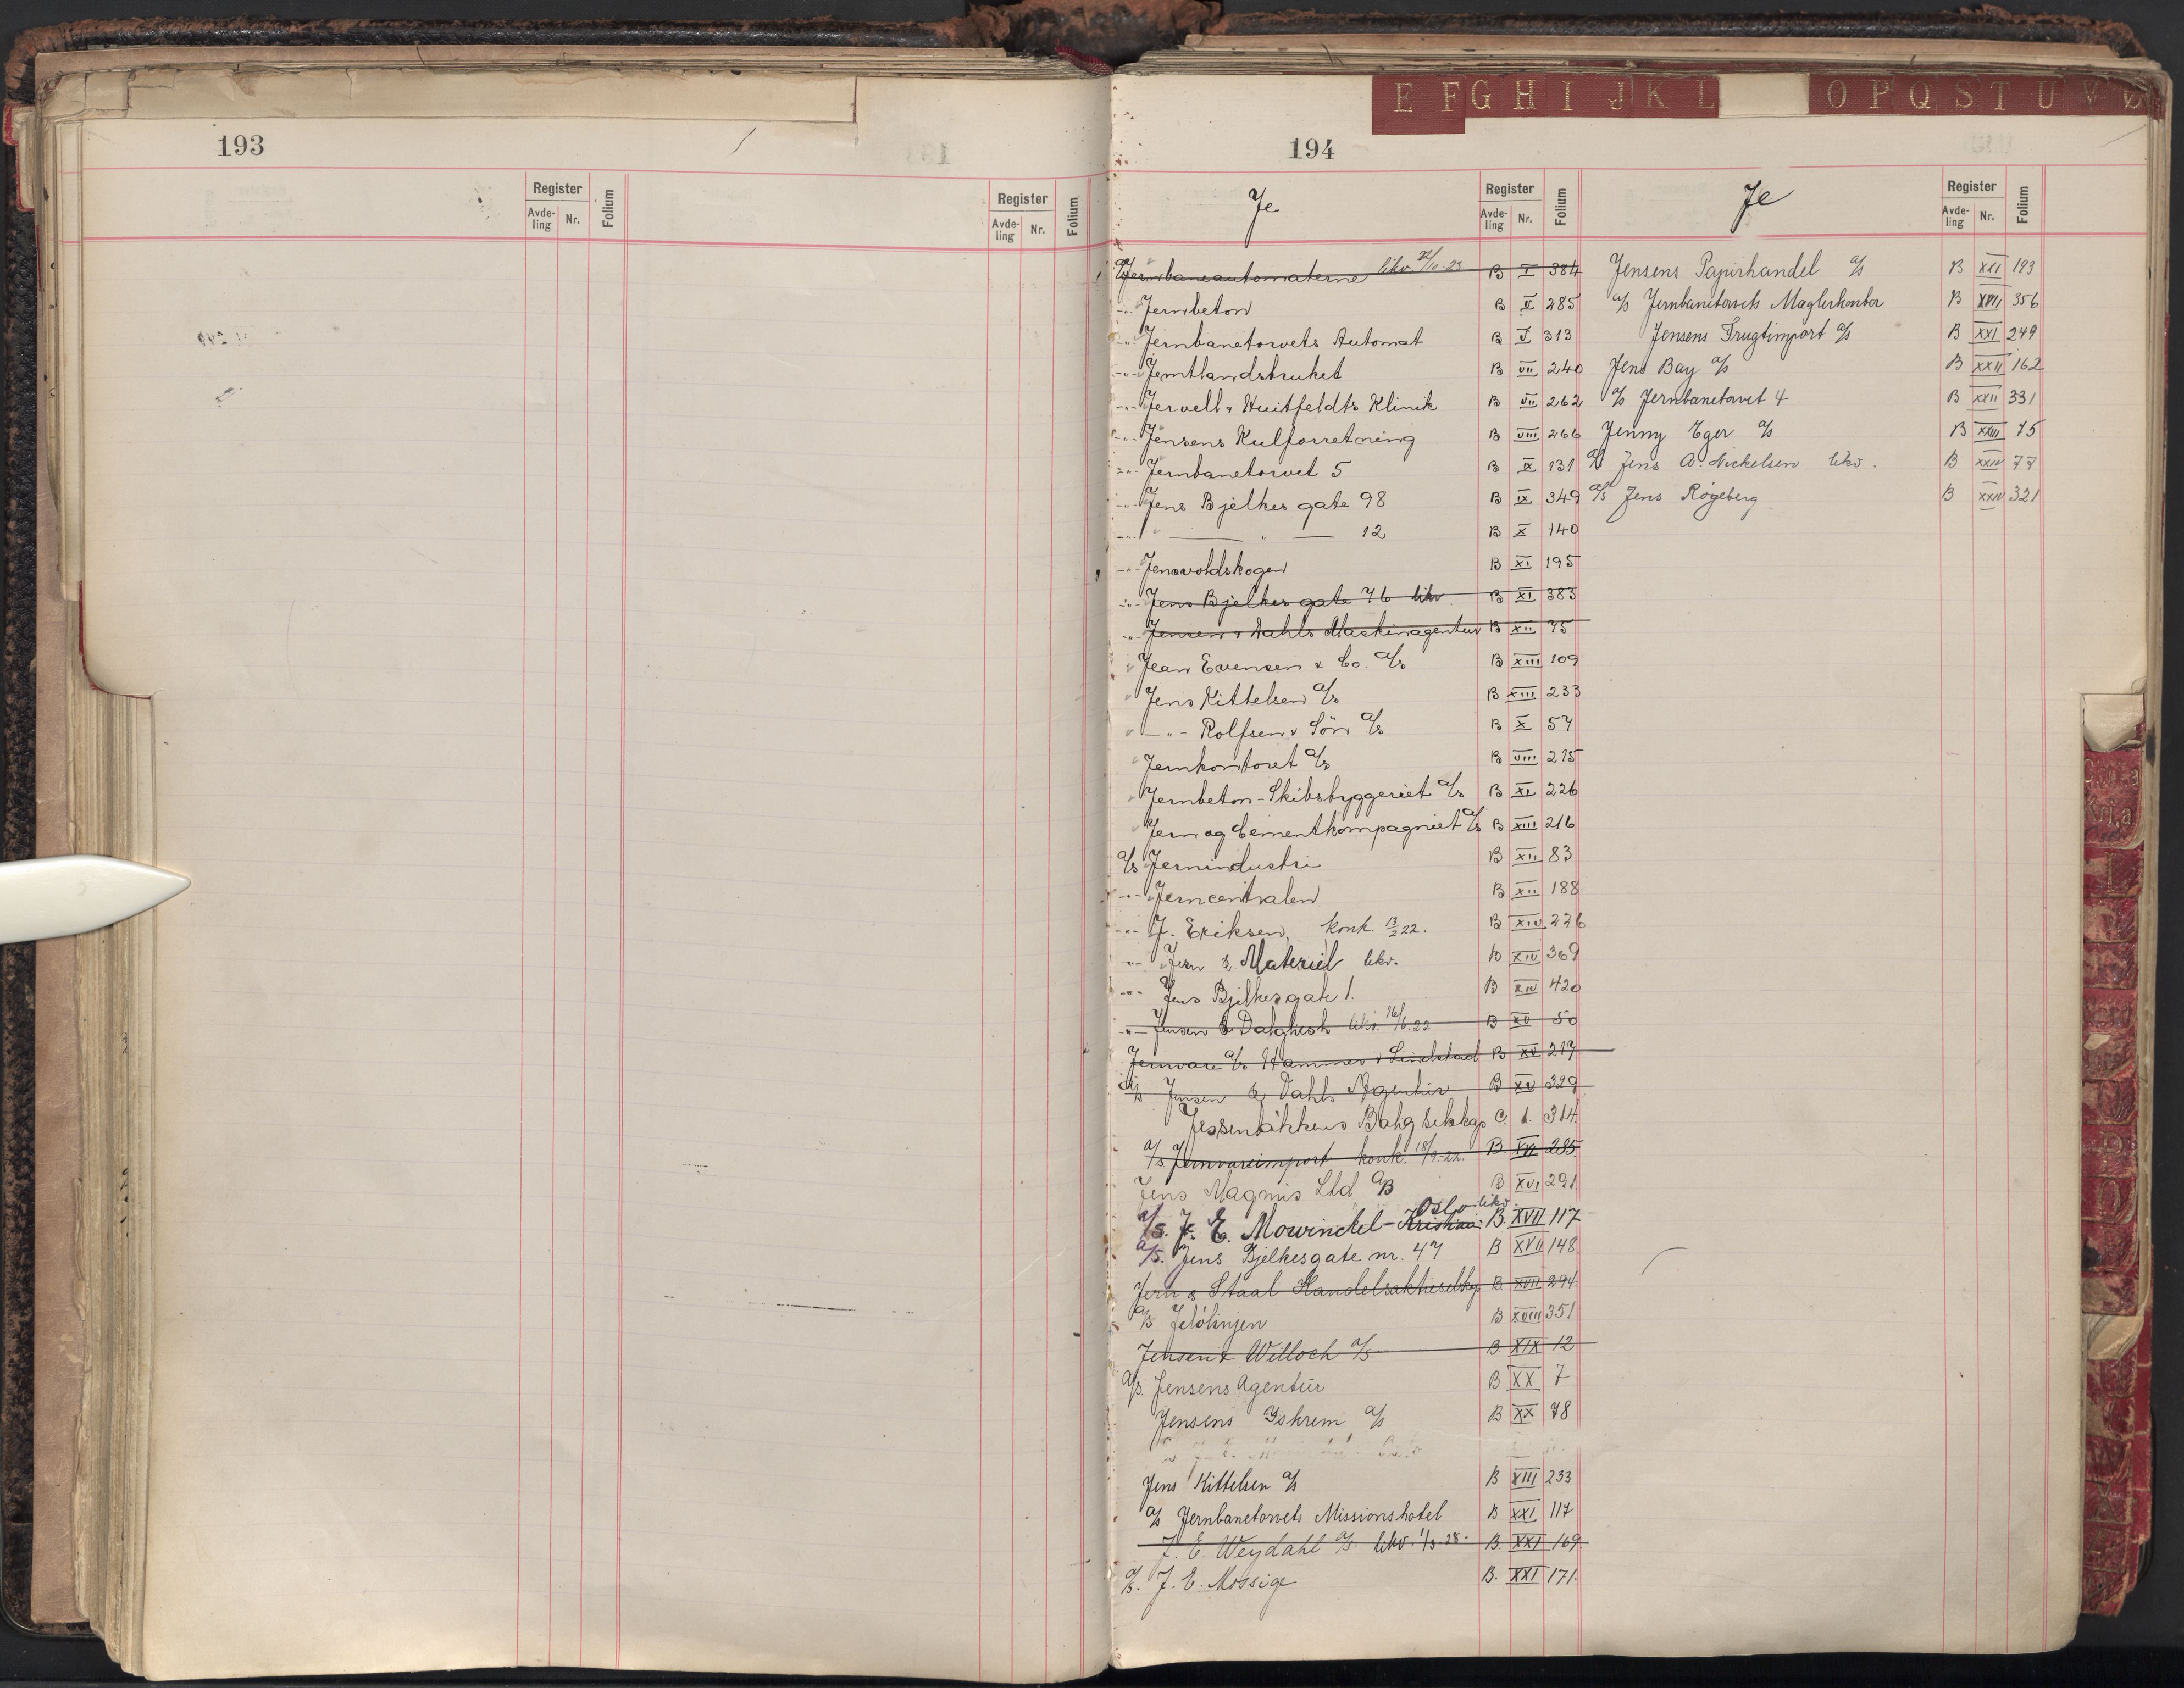 E F G H I J K L O P Q S T U V Ø
193
Register Folium Register Folium
Avde-ling Nr. Avde-ling Nr.
194
Je Register Folium Je Register Folium
Avde-ling Nr. Avde-ling Nr.
A/s Jernbaneautomaterne likv. /10-23 B I 384
-"- Jernbeton B V 285
-"- Jernbanetorvets Automat B V 313
-"- Jemtlandsbruket B VII 240
-"- Jervell & Huitfeldt's Klinik B VII 262
-"- Jensens Kulforretning B VIII 266
-"- Jernbanetorvet 5 B IX 131
-"- Jens Bjelkes gate 98 B IX 349
-"- " — " — 12 B X 140
-"- Jensvoldskogen B XI 195
-"- Jens Bjelkes gate 76 likv. B XI 383
-"- Jensen & Dahls Maskinagentur B XII 75
" Jean Evensen & Co. A/s B XIII 109
" Jens Kittelsen A/s B XIII 233
" -"- Rolfsen & Sön A/s B X 57
" Jernkontoret A/s B VIII 275
" Jernbeton-Skibsbyggeriet A/s B XI 226
" Jern og Cementkompagniet A/s B XIII 216
A/s Jernindustri B XII 83
-"- Jerncentralen B XII 188
-"- J. Eriksen, konk. 13/2 22. B XIV 226
-"- Jern & Materiel likv. B XIV 369
-"- Jens Bjelkesgate 1. B XIV 420
-"- Jensen & Dahlqkist likv. 16/6.22 B XV 50
Jernvare A/s Hammer & Lindstad B XV 217
A/s Jensen & Dahls Agentur B XV 329
Jessenløkkens Bolig selskap C. 1. 314.
A/s. Jernvareimport konk. 18/9-22. B. XVI 285
Jens Magnus Ltd A/B B XVI 291
A/s. J. E. Mowinckel - Kristiania Oslo likv. B. XVII 117
A/s. Jens Bjelkesgate nr. 47 B XVII 148
Jern & Staal Handelsaktieselskap B. XVII 294
A/s Jelølinjen B XVIII 351
Jensen & Willoch A/s. B XIX 12
A/s. Jensens Agentur B XX 7
Jensens Iskrem A/s B XX 78
Jens Kittelsen A/s B XIII 233
A/s Jernbanetorvets Missionshotel B XXI 117
J. E. Weydahl A/s. likv. 1/3-28. B. XXI 169.
A/s. J. E. Mossige B. XXI 171.
Jensens Papirhandel A/s B XXI 193
A/s Jernbanetorvets Maglerkontor B XVII 356
Jensens Frugtimport A/s B XXI 249
Jens Bay A/s B XXII 162
A/s Jernbanetorvet 4 B XXII 331
Jenny Eger A/s B XXIII 75
A/s Jens A. Nickelsen likv. B XXIV 77
A/s Jens Rögeberg B XXIV 321